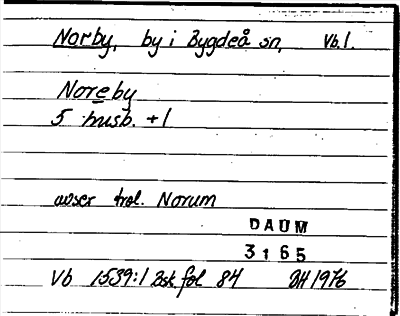 Norby, by i Bygdeå sn, Vb.l.
Noreby
5 husb. + 1
avser trol. Norum
DAUM
3165
Vb 1539:1 Bsk fol 84 BH 1976